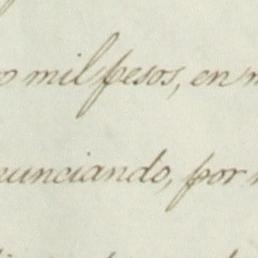 mil pesos, en
nunciando, por